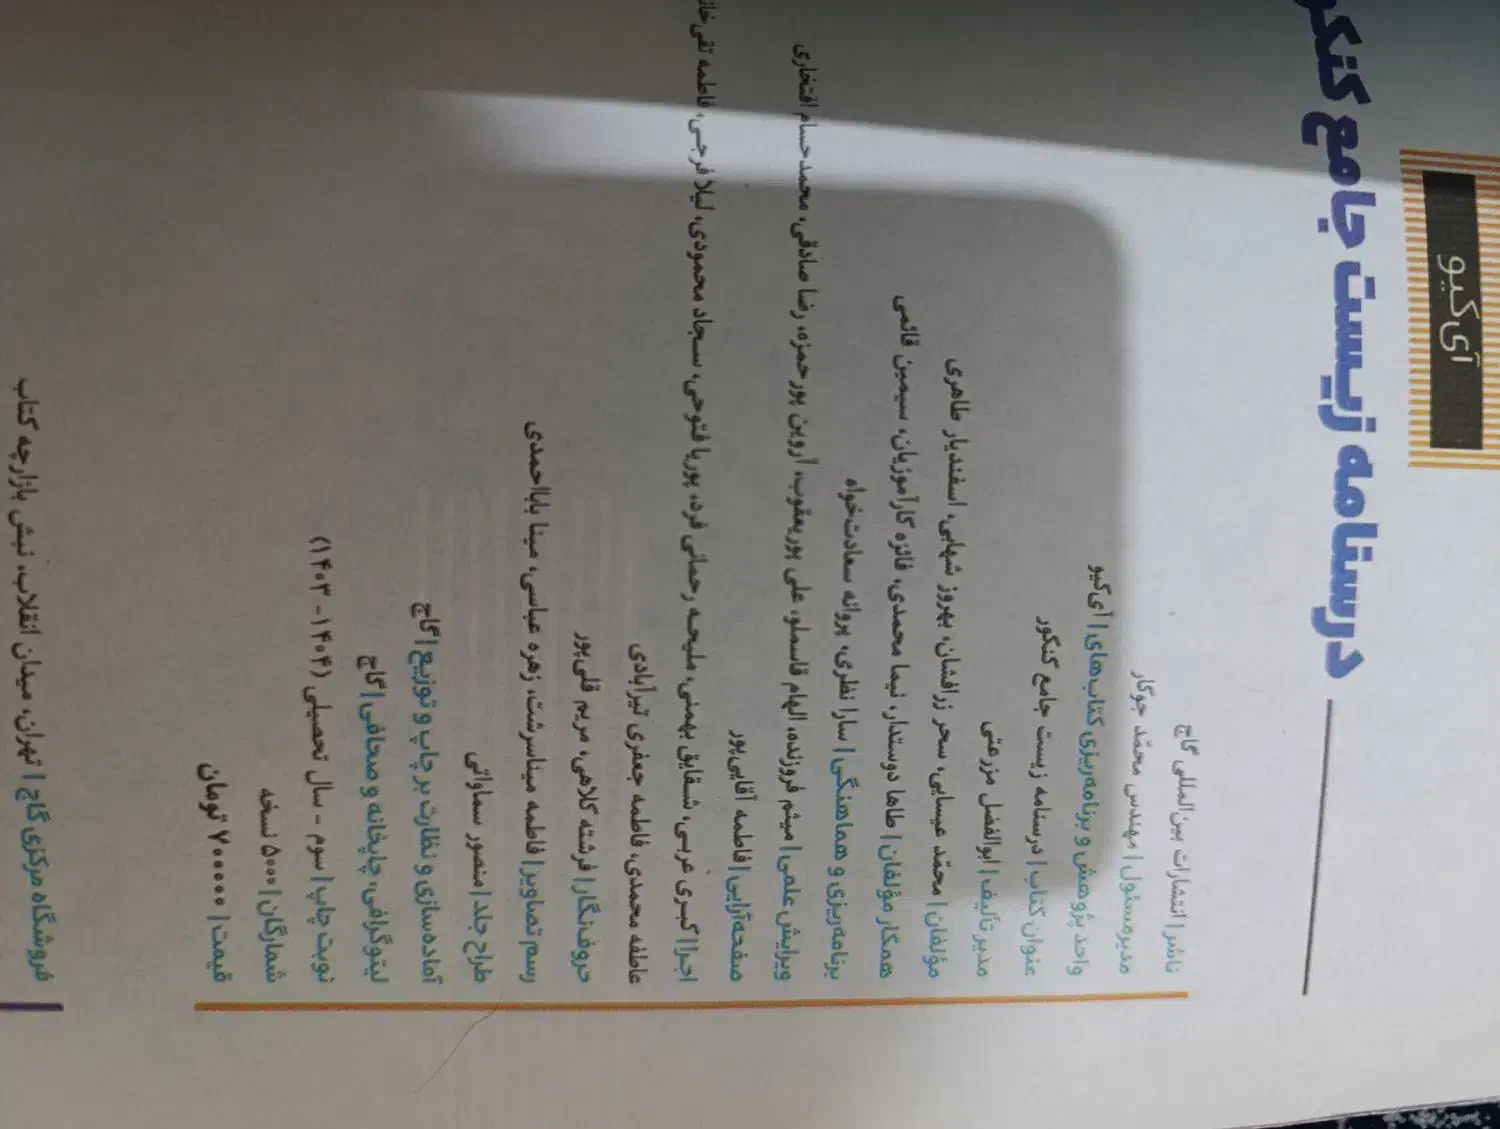 آی‌کیو
درسنامه زیست جامع
ناشر | انتشارات بین‌المللی گاج
مدیرمسئول | مهندس محمّد جوکار
واحد پژوهش و برنامه‌ریزی کتاب‌های | آی‌کیو
عنوان کتاب | درسنامه زیست جامع کنکور
مدیر تألیف | ابوالفضل مزرعتی
مؤلفان | محمّد عیسایی، سحر زرافشان، بهروز شهابی، اسفندیار طاهری
همکار مؤلفان | طاها دوستدار، نیما محمدی، فائزه کارآموزیان، سیمین قائمی
برنامه‌ریزی و هماهنگی | سارا نظری، پروانه سعادت‌خواه
ویرایش علمی | میثم فروزنده، الهام قاسملو، علی پوریعقوب، آروین پورحمزه، رضا صادقی، محمدحسام افتخاری
صفحه‌آرایی | فاطمه آقایی‌پور
اجرا | کبری عربی، شقایق بهمنی، ملیحه رحمانی فرد، پوریا فتوحی، سجاد محمودی، لیلا فرجی، فاطمه
عاطفه محمدی، فاطمه جعفری تیرآبادی
حروف‌نگار | فرشته کلاهی، مریم قلی‌پور
رسم تصاویر | فاطمه میناسرشت، زهره عباسی، مینا بابااحمدی
طراح جلد | منصور سماواتی
آماده‌سازی و نظارت بر چاپ و توزیع | گاج
لیتوگرافی، چاپخانه و صحافی | گاج
نوبت چاپ | سوم - سال تحصیلی (۱۴۰۴ - ۱۴۰۳)
شمارگان | ۵۰۰۰ نسخه
قیمت | ۷۰۰۰۰۰ تومان
فروشگاه مرکزی گاج | تهران، میدان انقلاب، نبش بازارچه کتاب